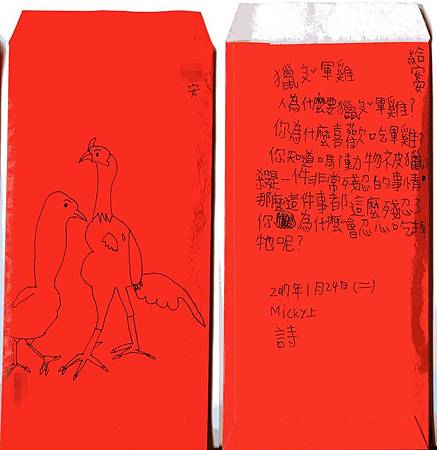 安
給安
獵ㄅㄨˇ軍雞
人為什麼要獵ㄅㄨˇ軍雞?
你為什麼喜歡吃軍雞?
你知道嗎動物被獵
殺是一件非常殘忍的事情
那麼這件事都這麼殘忍了
你為什麼會忍心吃掉
牠呢?
2017年1月24日(二)
Micky上
詩